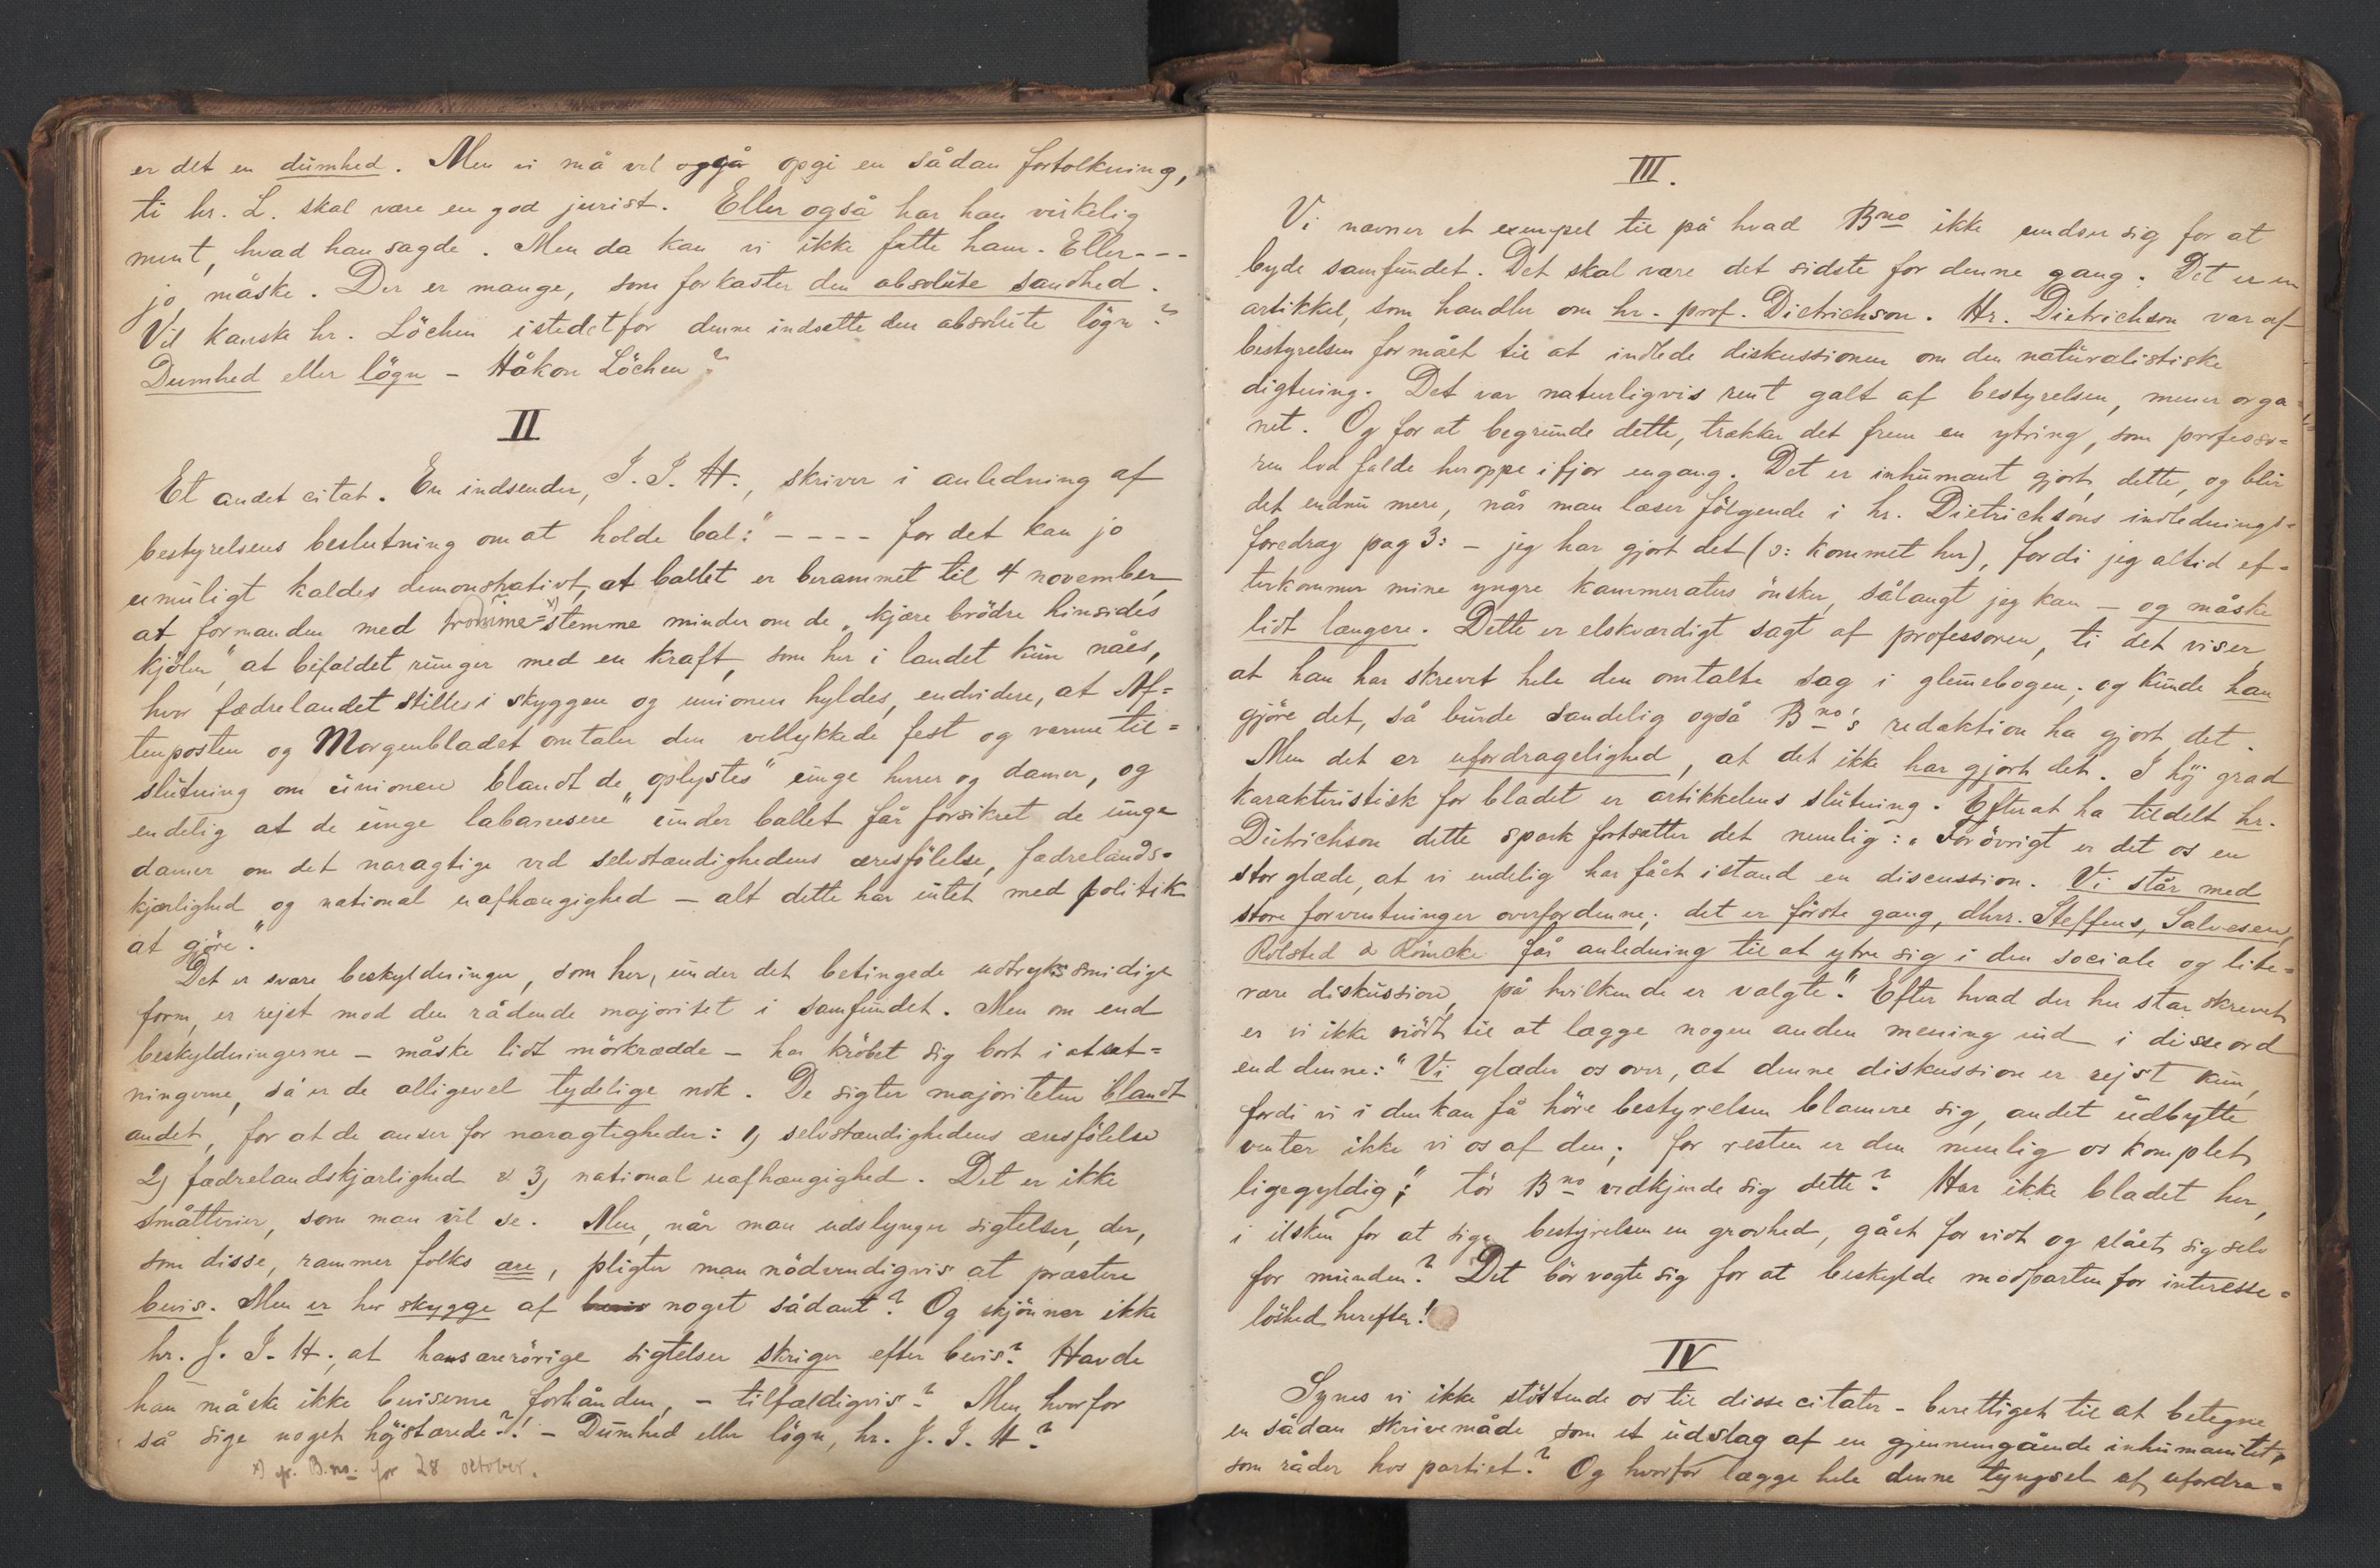 er det en dumhed. Men vi må vel oggå opgi en sådan fortolkning,
ti hr. L. skal være en god jurist. Eller også har han virkelig
ment, hvad han sagde. Men da kan vi ikke fatte ham. Eller---
jo måske. Der er mange, som forkaster den absolute sandhed.
Vil kanske hr. Löchen istedetfor denne indsætte den absolute lögn?
Dumhed eller lögn - Håkon Löchen?
II
Et andet citat. En indsender, J. J. H., skriver i anledning af
bestyrelsens beslutning om at holde bal: " ---- for det kan jo
umuligt kaldes demonstrativt, at ballet er berammet til 4 november,
at formanden med tromme=x) stemme minder om de "kjære brödre hinsides
kjölen", at bifaldet runger med en kraft, som her i landet kun nåes,
hvor fædrelandet stilles i skyggen og unionen hyldes, endvidere, at Af=
tenposten og Morgenbladet omtaler den vellykkede fest og varme til=
slutning om unionen blandt de "oplystes" unge herrer og damer, og
endelig at de unge labanesere "under ballet får forsikret de unge
damer om det naragtige ved selvstændighedens æresfölelse, fædrelands=
kjærlighed og national uafhængighed - alt dette har intet med politik
at gjöre".
Det er svare beskyldninger, som her, under det betingede udtryks smidige
form, er rejst mod den rådende majoritet i samfundet. Men om end
beskyldningerne - måske lidt mörkrædde - har kröbet sig bort i atsæt=
ningerne, så er de alligevel tydelige nok. De sigter majoriteten blandt
andet, for at de anser for naragtigheder: 1) selvstændighedens æresfölelse
2) fædrelandskjærlighed & 3) national uafhængighed. Det er ikke
småtterier, som man vil se. Men, når man udslynger sigtelser, der,
som disse, rammer folks ære, pligter man nödvendigvis at præstere
bevis. Men er her skygge af bevis noget sådant? Og skjönner ikke
hr. J. J. H., at hans ærerörige sigtelser skriger efter bevis? Havde
han måske ikke beviserne forhånden, - tilfældigvis? Men hvorfor
så sige noget höjstærede?! - Dumhed eller lögn, hr. J. J. H?
x) cfr. B.no. for 28 oktober.
III.
Vi nævner et exempel til på hvad Bno ikke undser sig for at
byde samfundet. Det skal være det sidste for denne gang. Det er en
artikkel, som handler om hr. prof. Dietrichson. Hr. Dietrichson var af
bestyrelsen formået til at indlede diskussionen om den naturalistiske
digtning. Det var naturligvis rent galt af bestyrelsen, mener orga=
net. Og for at begrunde dette, trækker det frem en ytring, som professo=
ren lod falde heroppe ifjor engang. Det er inhumant gjort, dette, og blir
det endnu mere, når man læser fölgende i hr. Dietrichsons indlednings=
foredrag pag 3: - jeg har gjort det (ɔ: kommet her), fordi jeg altid ef=
terkommer mine yngre kammeraters önsker, sålangt jeg kan - og måske
lidt længere. Dette er elskværdigt sagt af professoren, ti det viser,
at han har skrevet hele den omtalte sag i glemebogen; og kunde han
gjöre det, så burde sandelig også Bno's redaktion ha gjort det.
Men det er ufordragelighed, at det ikke har gjort det. I höj grad
karakteristisk for bladet er artikkelens slutning. Efterat ha tildelt hr.
Dietrichson dette spark fortsætter det nemlig: "Forövrigt er det os en
stor glæde, at vi endelig har fået istand en discussion. Vi står med
store forventninger overfor denne; det er förste gang, dhrr. Steffens, Salvesen,
Rolsted & Römcke får anledning til at ytre sig i den sociale og lite=
rære diskussion, på hvilken de er valgte." Efter hvad der her står skrevet
er vi ikke nödt til at lægge nogen anden mening ind i disse ord
end denne: "Vi glæder os over, at denne diskussion er rejst kun,
fordi vi i den kan få höre bestyrelsen blamere sig, andet udbytte
venter ikke vi os af den; for resten er den nemlig os komplet
ligegyldig;" tör Bno vedkjende sig dette? Har ikke bladet her,
i ilsken for at sige bestyrelsen en grovhed, gået for vidt og slået sig selv
for munden? Det bör vogte sig for at beskylde modparten for interesse=
löshed herefter!
IV
Synes vi ikke stöttende os til disse citater - berettiget til at betegne
en sådan skrivemåde som et udslag af en gjennemgående inhumanitet,
som råder hos partiet? Og hvorfor lægge hele denne tyngsel af ufordra=